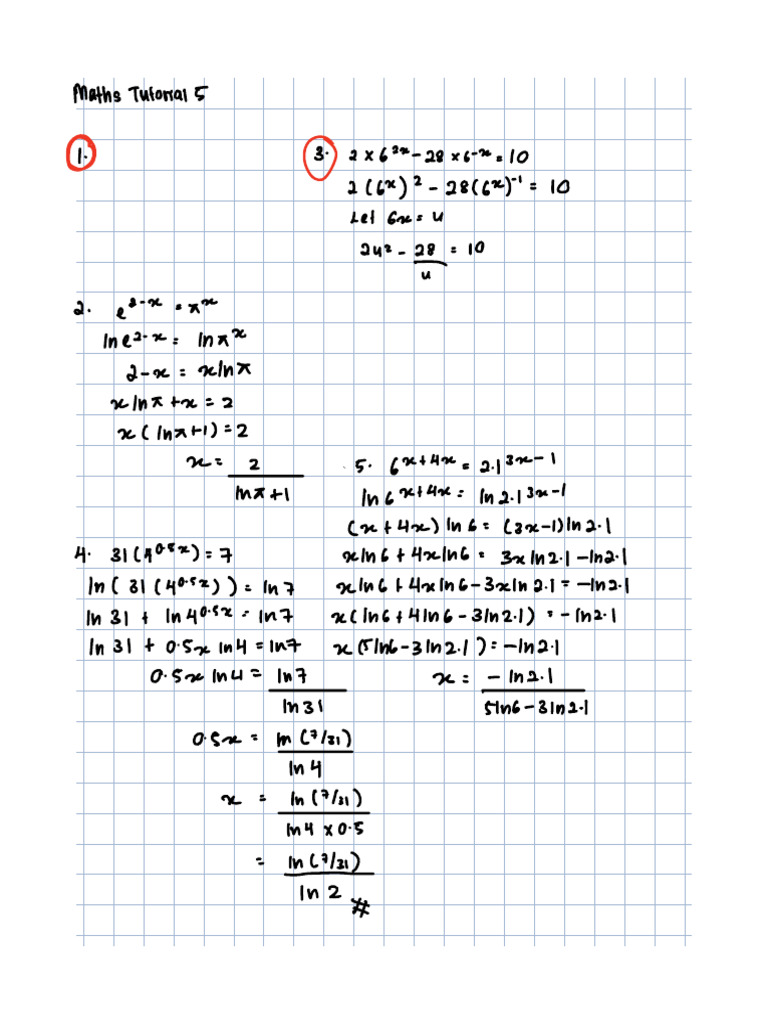 Maths Tutorial 5
1.
3. 2 × 6^2x − 28 × 6^−x = 10
2(6^x)^2 − 28(6^x)^−1 = 10
Let 6x = u
2u² − 28/u = 10
2. e^2−x = π^x
ln e^2−x = ln π^x
2−x = x ln π
x ln π + x = 2
x(ln π + 1) = 2
x = 2/(ln π + 1)
4. 31(4^0.5x) = 7
ln(31(4^0.5x)) = ln 7
ln 31 + ln 4^0.5x = ln 7
ln 31 + 0.5x ln 4 = ln 7
0.5x ln 4 = ln 7/ln 31
0.5x = ln(7/31)/ln 4
x = ln(7/31)/ln 4 × 0.5
= ln(7/31)/ln 2 #
5. 6^x+4x = 2.1^3x−1
ln 6^x+4x = ln 2.1^3x−1
(x+4x) ln 6 = (3x−1) ln 2.1
x ln 6 + 4x ln 6 = 3x ln 2.1 − ln 2.1
x ln 6 + 4x ln 6 − 3x ln 2.1 = − ln 2.1
x(ln 6 + 4 ln 6 − 3 ln 2.1) = − ln 2.1
x(5 ln 6 − 3 ln 2.1) = − ln 2.1
x = − ln 2.1/(5 ln 6 − 3 ln 2.1)